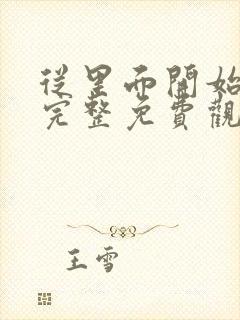 從里而開始
完整免費觀
王雪